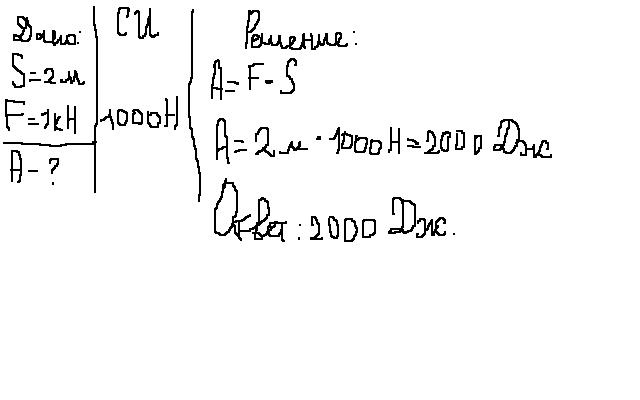 Дано:
S=2м
F=1кН
A-?
СИ
1000Н
Решение:
A=F·S
A=2м·1000Н=2000 Дж
Ответ: 2000 Дж.